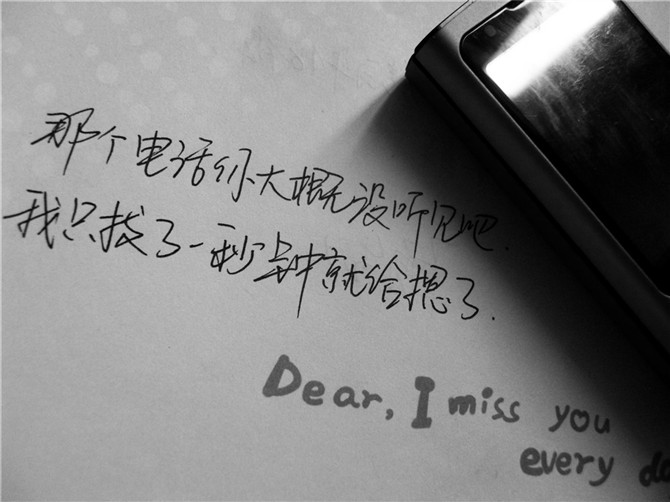 那个电话你大概没听见吧.
我只拨了一秒钟就给摁了.
Dear, I miss you
every